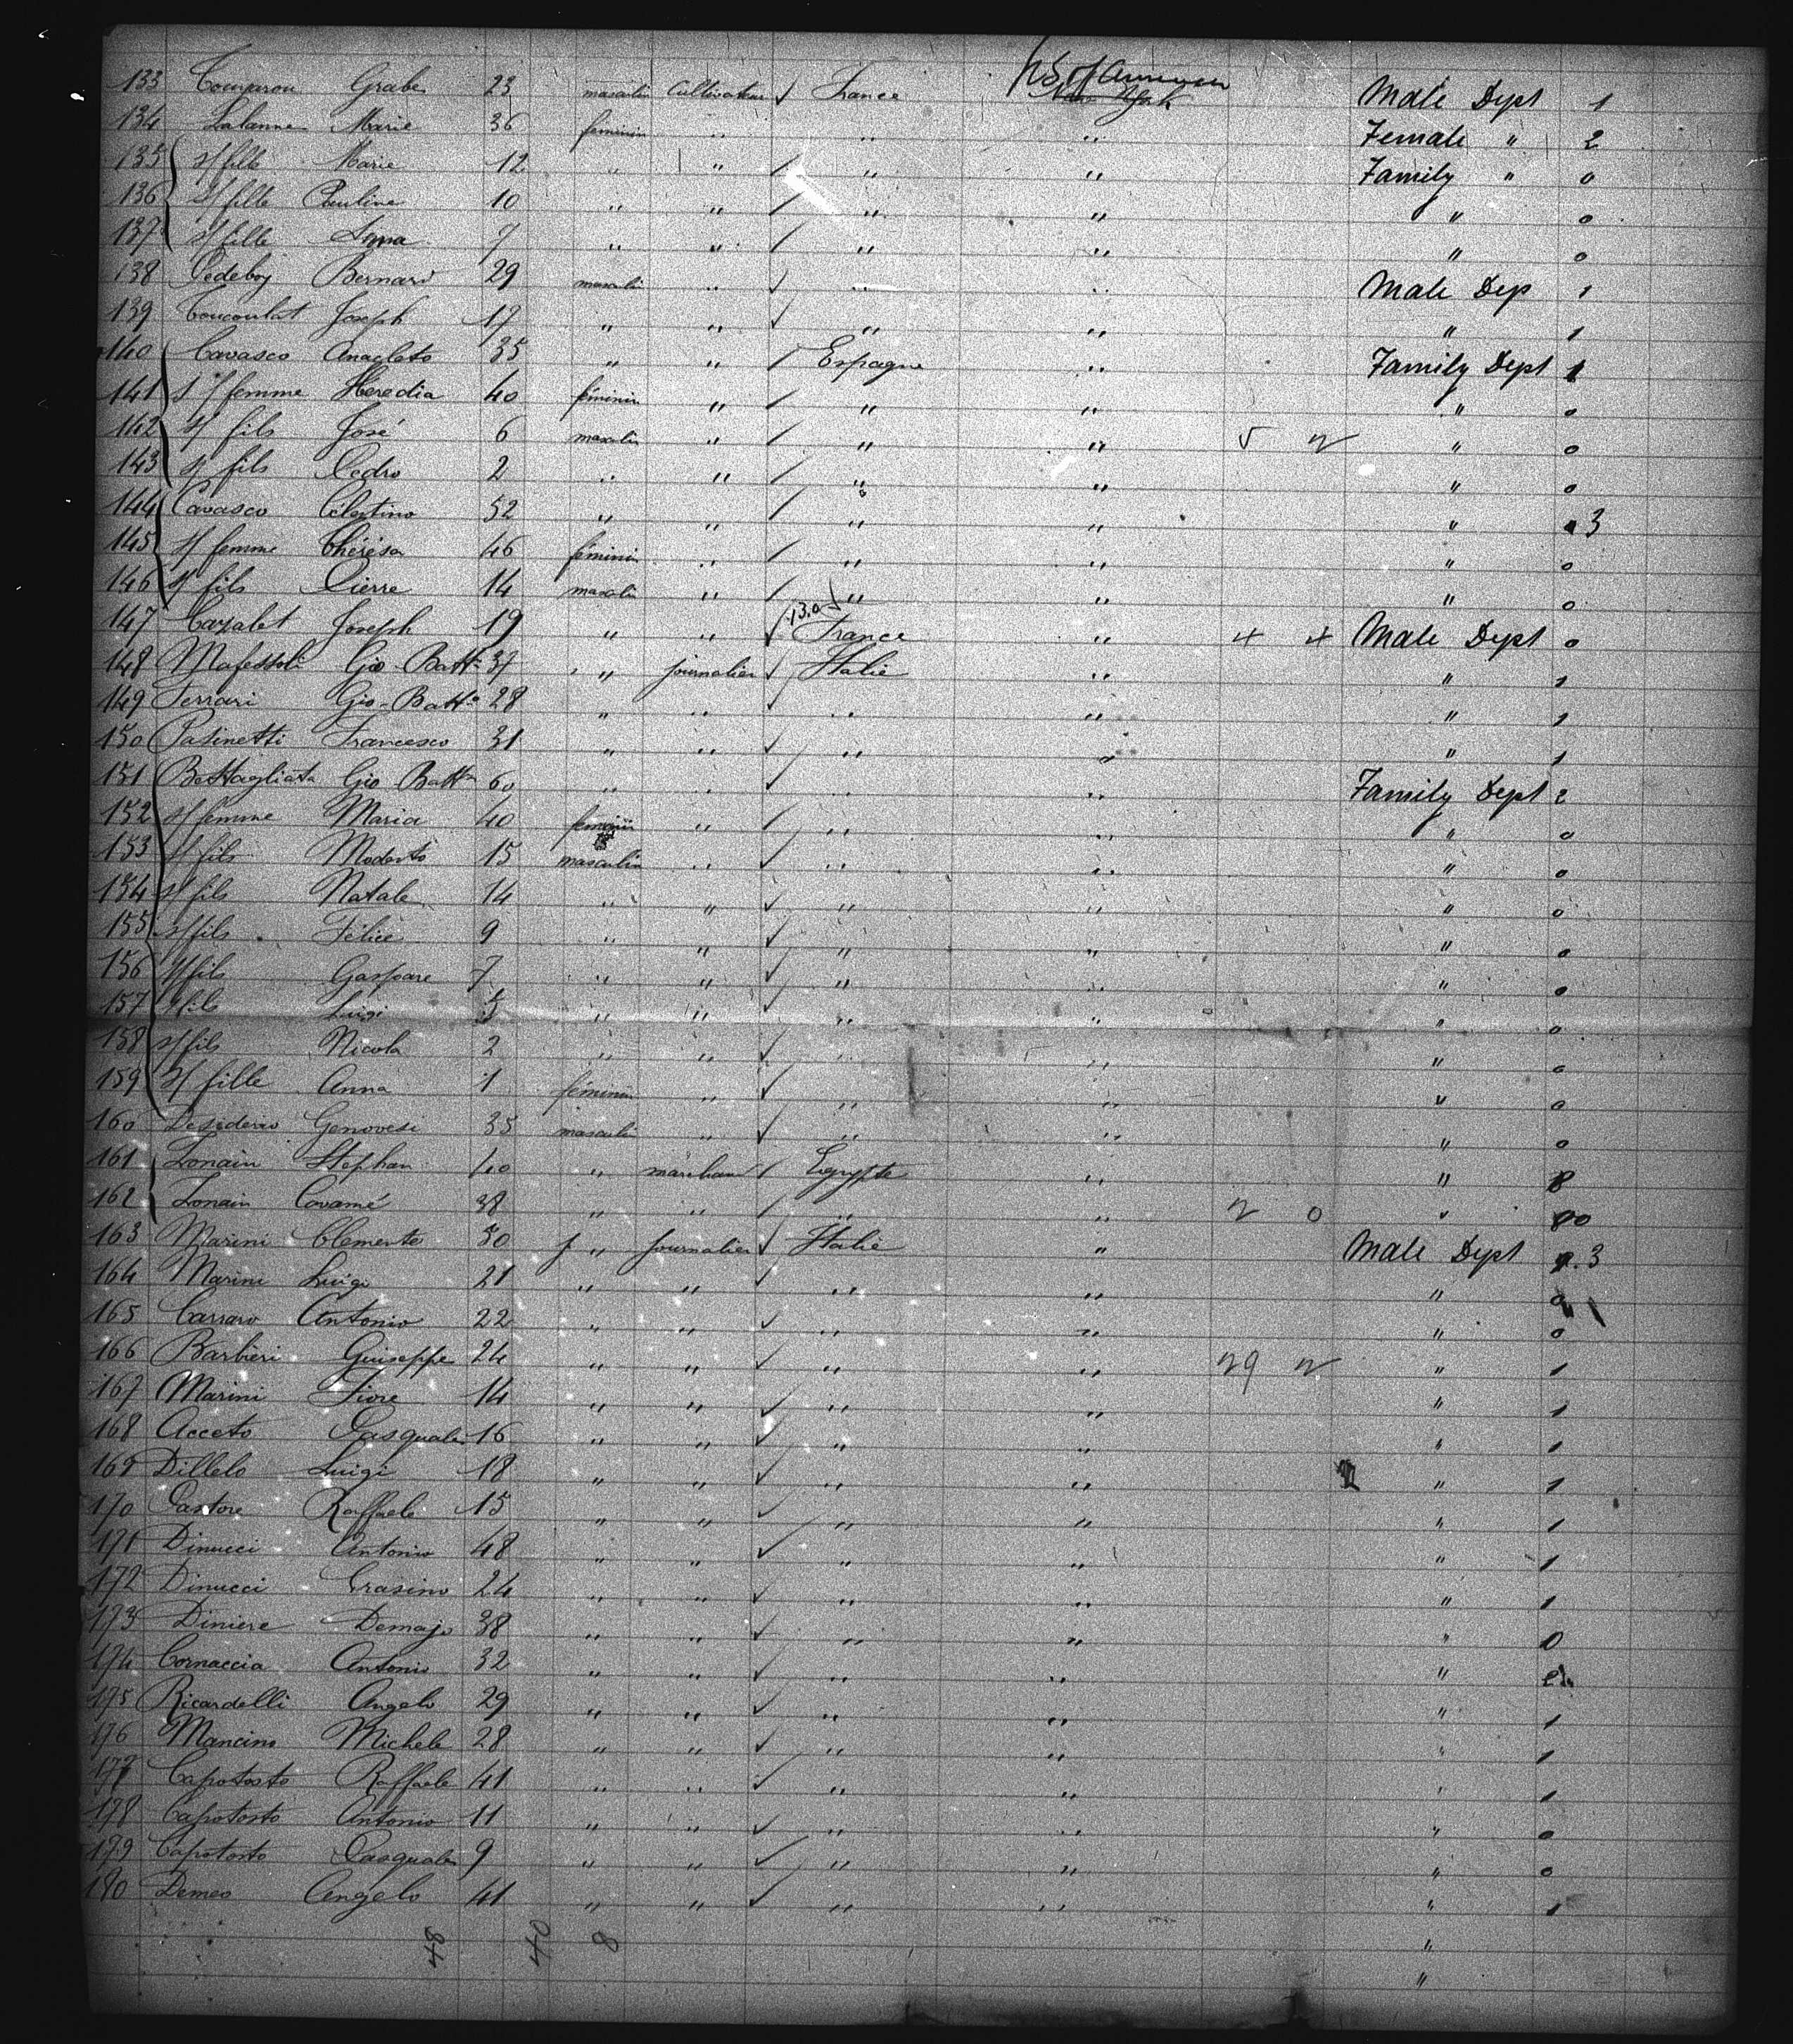 133 Graber 23 masculin Cultivateur ✓ France US of America New York Male Dept 1
134 Lalanne Marie 36 feminin " " " Female " 2
135 s/ fille Marie 12 " " / " " Family " 0
136 s/ fille Pauline 10 " " / " " " 0
137 s/ fille 7 " " / " " " 0
138 Pedeboy Bernard 29 masculin " ✓ " " Male Dep 1
139 Toucoulat Joseph 17 " " ✓ " " " 1
140 Cavasco Anacleto 35 " " / Espagne " Family Dept 1
141 s/ femme Heredia 40 féminin " / " " " 0
142 s/ fils José 6 masculin " / " " " 0
143 s/ fils Pedro 2 " " / " " " 0
144 Cavasco Célestino 52 " " / " " " 3
145 s/ femme Thérésa 46 féminin " / " " " 0
146 s/ fils Pierre 14 masculin " / " " " 0
147 Cazalet Joseph 19 " " ✓ France " Male Dept 0
148 Mafessoli Gio-Batta 37 " journalier ✓ Italie " " 1
149 Ferrari Gio-Batta 28 " " ✓ " " " 1
150 Pasinetti Francesco 31 " " ✓ " " " 1
151 Bettagliata Gio Batta 60 " " ✓ " " Family Dept 2
152 s/ femme Maria 40 feminin " / " " " 0
153 s/ fils Modesto 15 masculin " ✓ " " " 0
154 s/ fils Natale 14 " " ✓ " " " 0
155 s/ fils Félice 9 " " ✓ " " " 0
156 s/ fils Gaspare 7 " " ✓ " " " 0
157 s/ fils Luigi " " ✓ " " " 0
158 s/ fils Nicola 2 " " ✓ " " " 0
159 s/ fille Anna 1 féminin " ✓ " " " 0
160 Desiderio Genovesi 35 masculin " ✓ " " " 0
161 Zonain Stephan 40 " marchan / Egypte " "
162 Zonain 38 " " / " " 2 0 "
163 Marini Clemente 30 " journalier ✓ Italie " Male Dept 3
164 Marini Luigi 21 " " ✓ " " "
165 Carraro Antonio 22 " " ✓ " " " 0
166 Barbieri Guiseppe 24 " " ✓ " " 29 " 1
167 Marini Fiore 14 " " ✓ " " " 1
168 Acceto Pasquale 16 " " ✓ " " " 1
169 Dillelo Luigi 18 " " ✓ " " " 1
170 Pastore Raffaele 15 " " ✓ " " " 1
171 Dinucci Antonio 48 " " ✓ " " " 1
172 Dinucci Erasimo 24 " " ✓ " " " 1
173 Diniere Demajo 38 " " ✓ " " " 0
174 Cornaccia Antonio 32 " " ✓ " " "
175 Ricardelli Angelo 29 " " ✓ " " " 1
176 Mancino Michele 28 " " ✓ " " " 1
177 Capotosto Raffaele 41 " " ✓ " " " 1
178 Capotosto Antonio 11 " " ✓ " " " 0
179 Capotosto Pasquale 9 " " ✓ " " " 0
180 Demeo Angelo 41 " " ✓ " " " 1
34 40 8 "
"